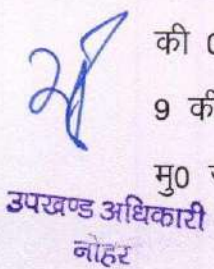 की
9 की
मु0
उपखण्ड अधिकारी
नोहर